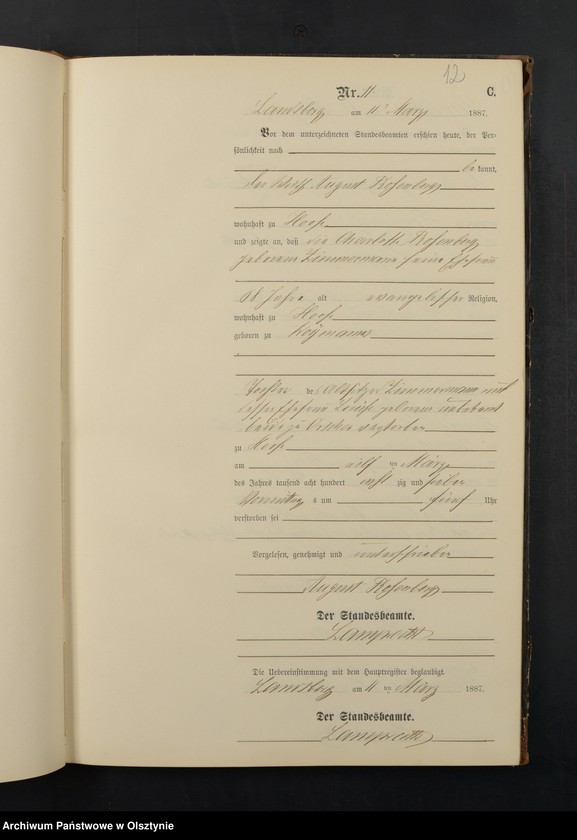 12
Nr. 11. C.
Landsberg am 11 März 1887.
Vor dem unterzeichneten Standesbeamten erschien heute, der Per-
sönlichkeit nach
be kannt,
der Wirth August Rosenberg
wohnhaft zu Hoofe
und zeigte an, daß die Charlotte Rosenberg
geborene Zimmermann seine Ehefrau
Jahre alt evangelischer Religion,
wohnhaft zu Hoofe
geboren zu
Tochter der Altsitzer Zimmermann und
dessen Ehefrau Louise geborene unbekannt
beide zu verstorben
zu Hoofe
am elf ten März
des Jahres tausend acht hundert acht zig und sieben
Vormittag s um fünf Uhr
verstorben sei
Vorgelesen, genehmigt und unterschrieben
August Rosenberg
Der Standesbeamte.
Lamprecht
Die Uebereinstimmung mit dem Hauptregister beglaubigt.
Landsberg am 11 ten März 1887.
Der Standesbeamte.
Lamprecht
Archiwum Państwowe w Olsztynie